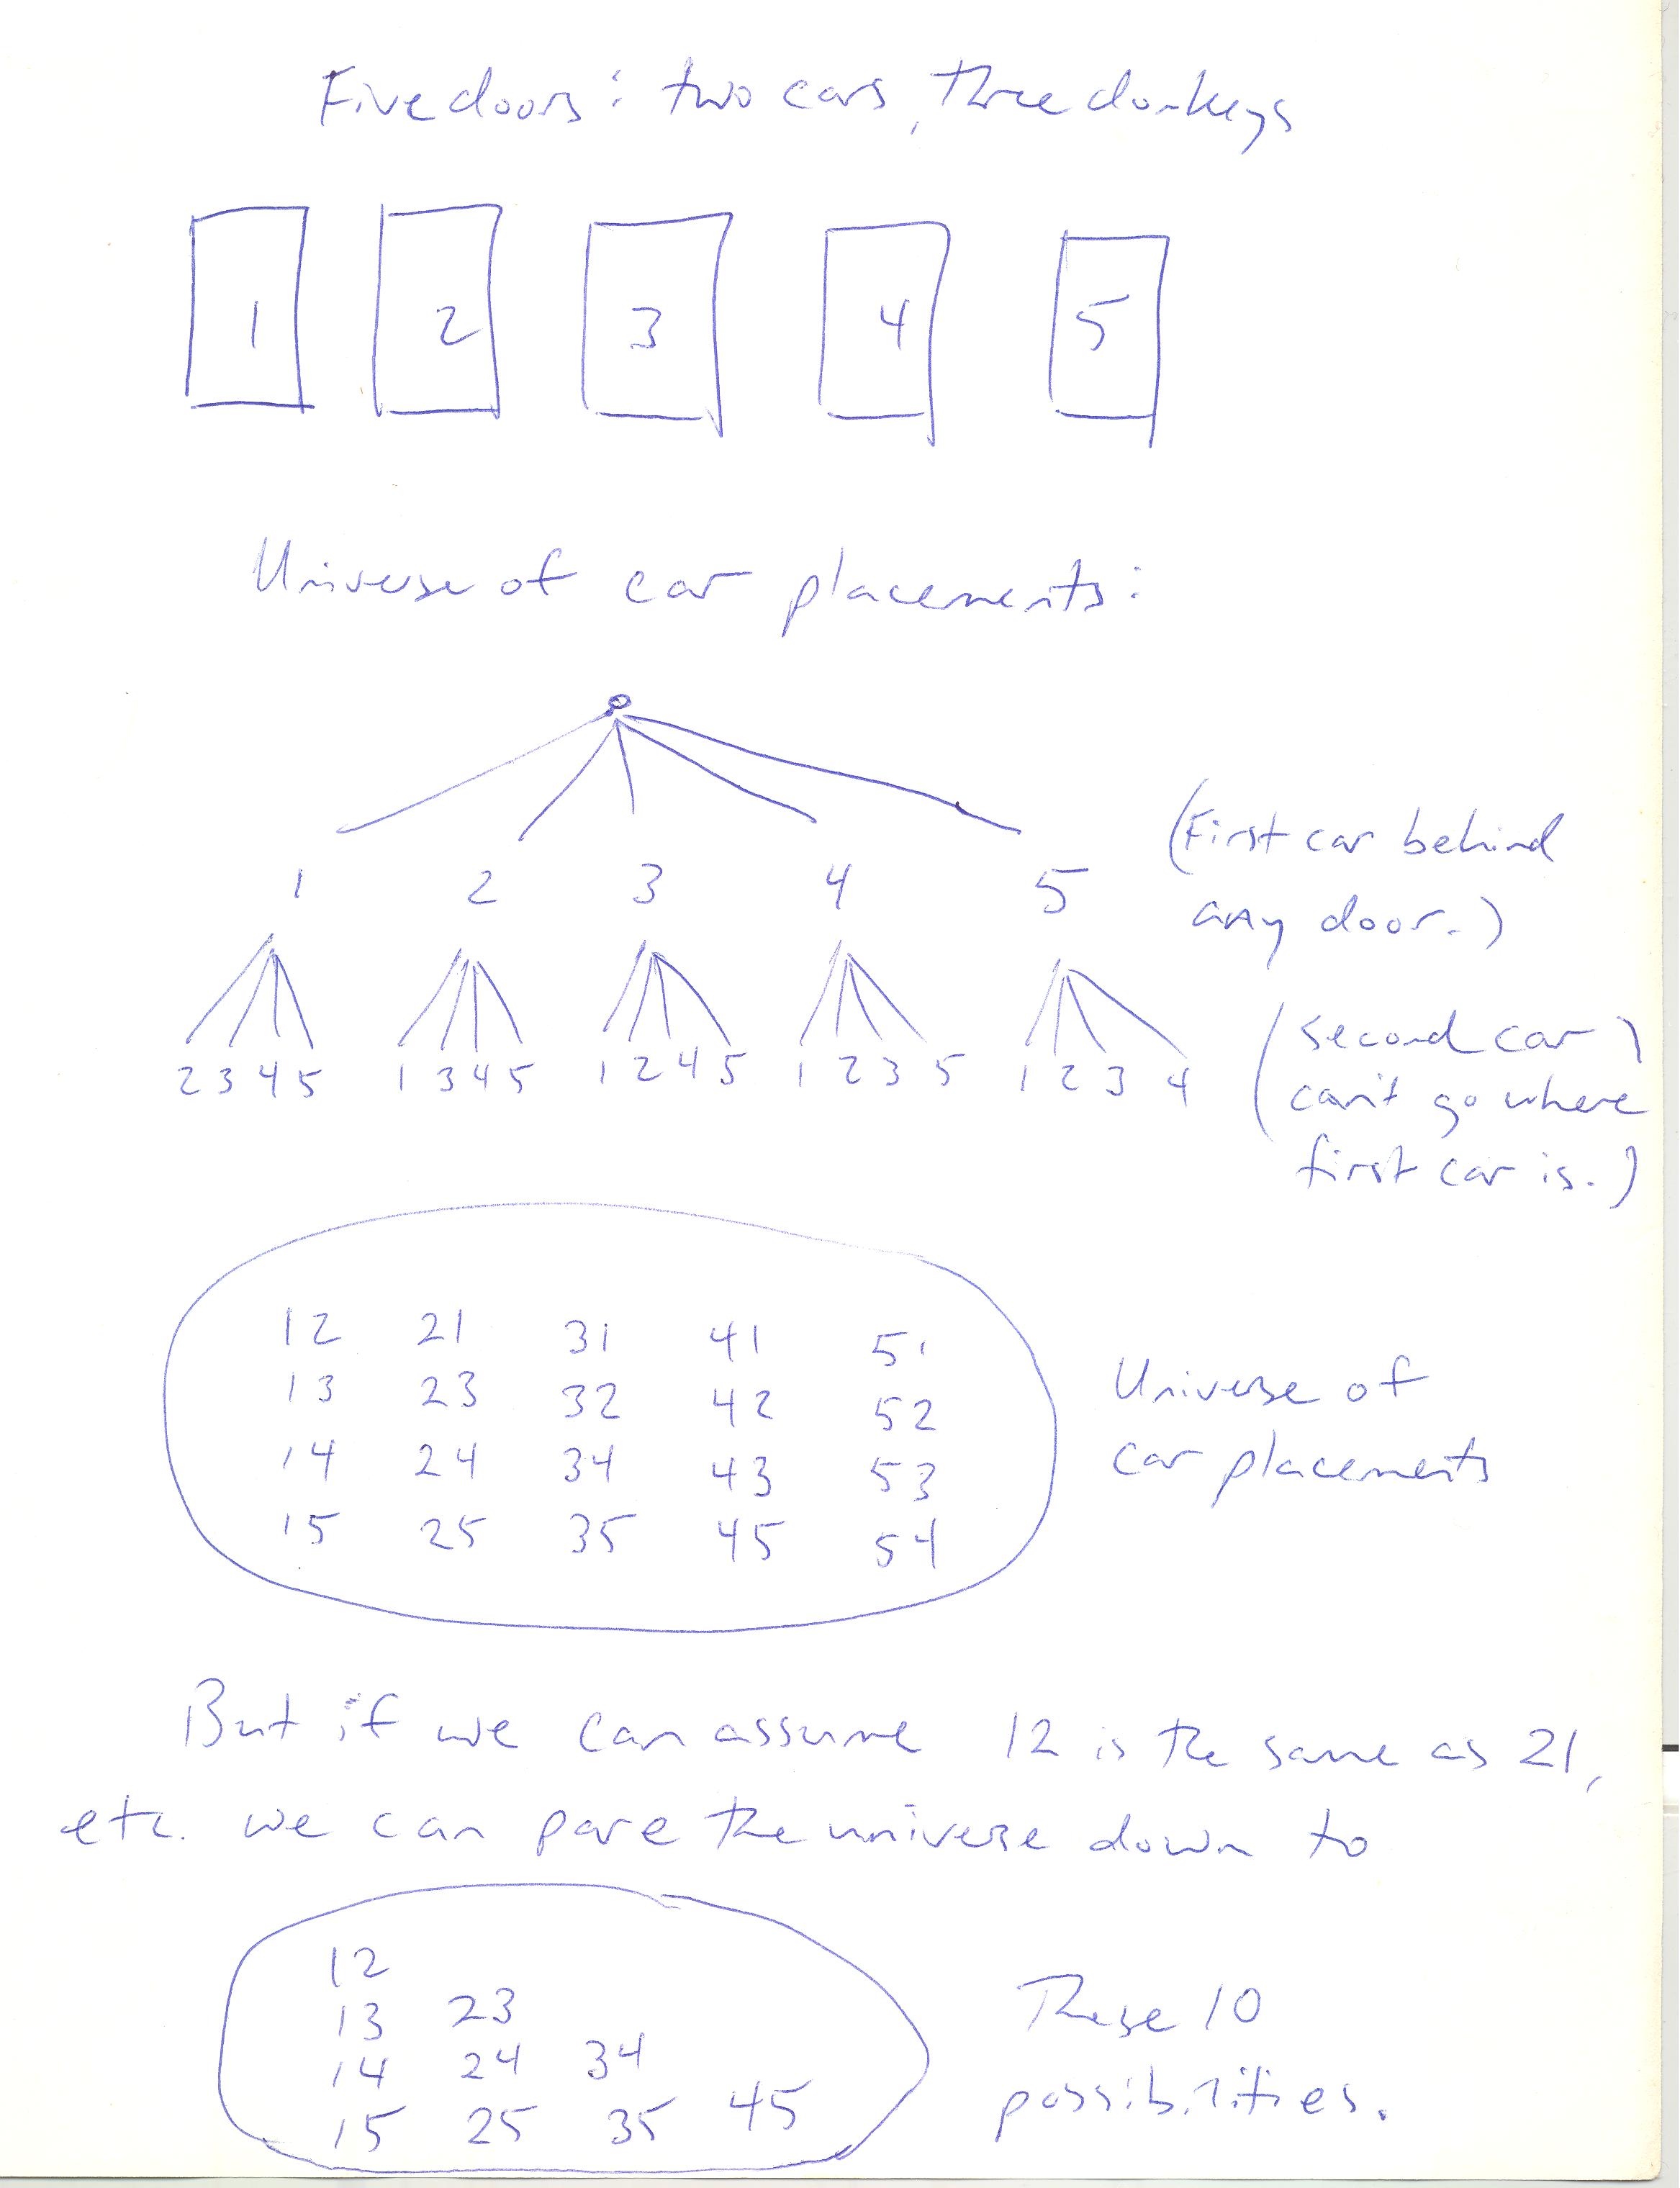 Five doors: two cars, three donkeys
1 2 3 4 5
Universe of car placements:
1 2 3 4 5
(First car behind
any door.)
2 3 4 5 1 3 4 5 1 2 4 5 1 2 3 5 1 2 3 4
(second car)
can't go where
first car is.)
12 21 31 41 51
13 23 32 42 52
14 24 34 43 53
15 25 35 45 54
Universe of
car placements
But if we can assume 12 is the same as 21,
etc. we can pare the universe down to
12
13 23
14 24 34
15 25 35 45
These 10
possibilities.